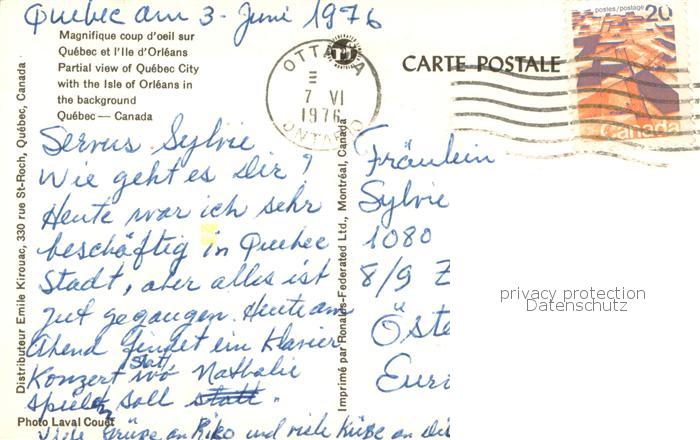 Quebec am 3. Juni 1976
Magnifique coup d'oeil sur
Québec et l'Ile d'Orléans
Partial view of Québec City
with the Isle of Orléans in
the background
Québec — Canada
OTTAWA
7 VI
1976
ONTARIO
CARTE POSTALE
postes/postage
20
Canada
Distributeur Emile Kirouac, 330 rue St-Roch, Québec, Canada
Servus Sylvie
Wie geht es Dir?
Heute war ich sehr
beschäftig in Quebec
Stadt, aber alles ist
gut gegangen. Heute am
Abend findet ein Klavier
Konzert statt wo Nathalie
spielen soll statt.
Viele Grüße an Kiko und viele Küße an Dich
Photo Laval Couët
Imprimé par Ronalds-Federated Ltd., Montréal, Canada
Fräulein
Sylvie
1080
8/9 Z
Öste
Euro
privacy protection
Datenschutz